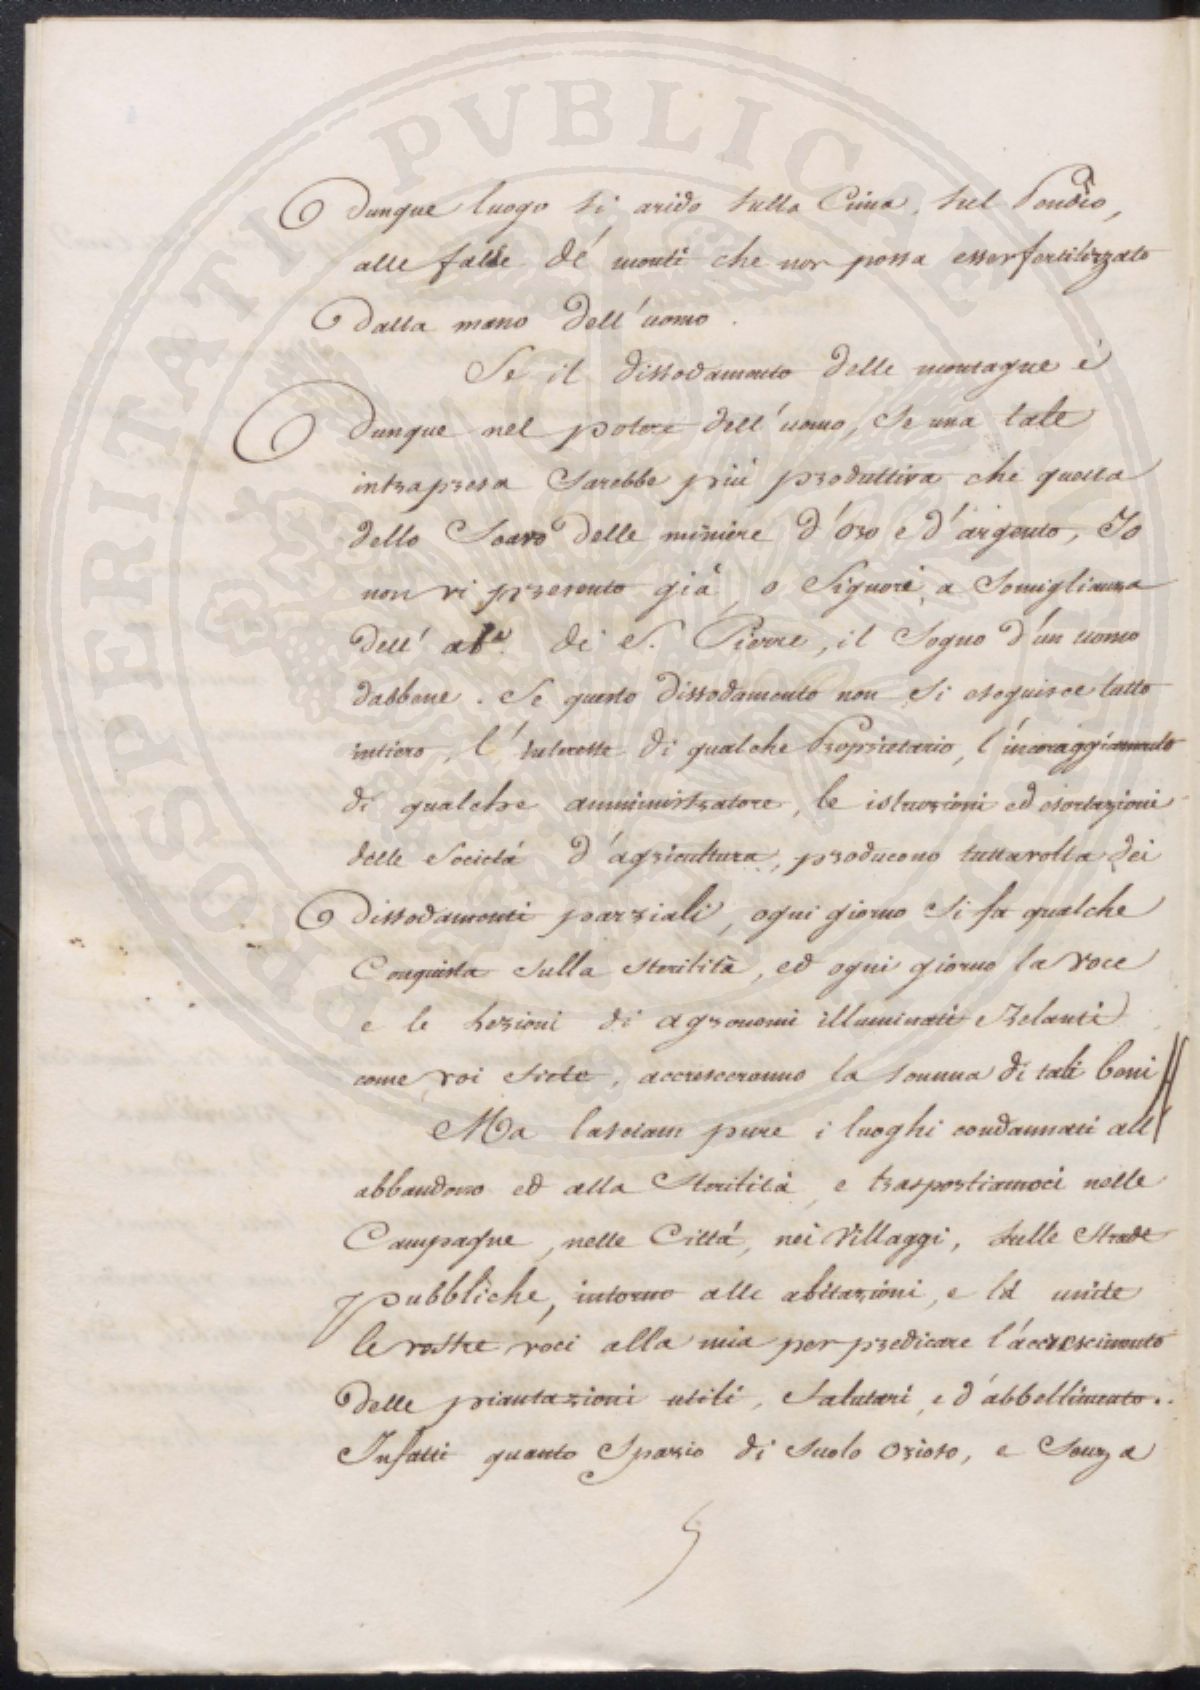 Dunque luogo sì arido sulla Cima, sul Pendio,
alle falde de' monti che non possa esser fertilizzato
dalla mano dell'uomo.
Se il dissodamento delle montagne è
Dunque nel potere dell'uomo, se una tale
intrapresa sarebbe più produttiva che questa
dello Scavo delle miniere d'oro e d'argento, Io
non vi presento già, o Signori, a Somiglianza
dell' ab.e di S. Pierre, il Sogno d'un uomo
dabbene. Se questo dissodamento non si eseguisce tutto
intiero, l'interesse di qualche Proprietario, l'incoraggiamento
di qualche amministratore, le istruzioni ed esortazioni
delle Società d'agricultura, producono tuttavolta dei
Dissodamenti parziali, ogni giorno si fa qualche
Conquista sulla sterilità, ed ogni giorno la voce
e le lezioni di agronomi illuminati e Zelanti
come voi siete, accresceranno la somma di tali beni //
Ma lasciam pure i luoghi condannati all'
abbandono ed alla Sterilità, e trasportiamoci nelle
Campagne, nelle Città, nei Villaggi, sulle Strade
pubbliche, intorno alle abitazioni, e là unite
le vostre voci alla mia per predicare l'accrescimento
delle piantazioni utili, Salutari, e d'abbellimento..
Infatti quanto Spazio di Suolo ozioso, e Senza
PROSPERITATI PVBLICAE